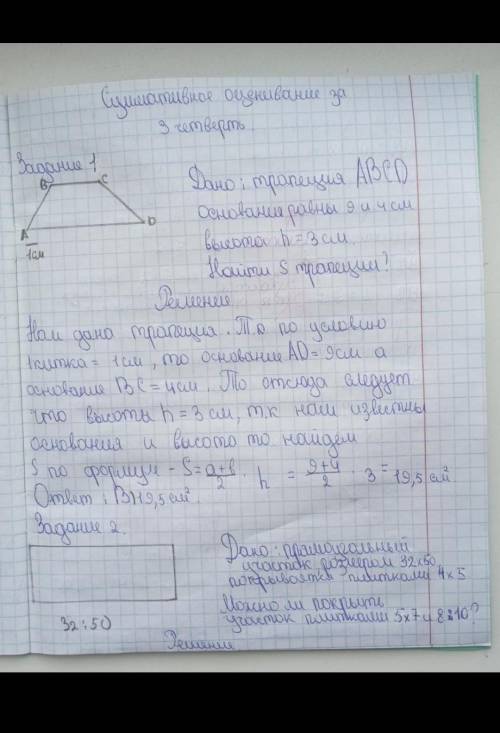 Суммативное оценивание за
3 четверть.
Задание 1
B C
A D
1см
Дано: трапеция ABCD
основания равны 9 и 4 см
высота h = 3 см.
Найти S трапеции?
Решение
Нам дана трапеция. Т.к по условию
1 клитка = 1см, то основание AD = 9см а
основание BC = 4см. То отсюда следует
что высоты h = 3 см, т.к нам известны
основания и высото то найдем
S по формул - S = a+b/2 · h = 9+4/2 · 3 = 19,5 см²
Ответ: B) 19,5 см².
Задание 2.
Дано: прямоугольный
участок размером 32x50
покрывается плитками 4x5
Можно ли покрыть
участок плитками 5x7 и 8x10?
32:50
Решение